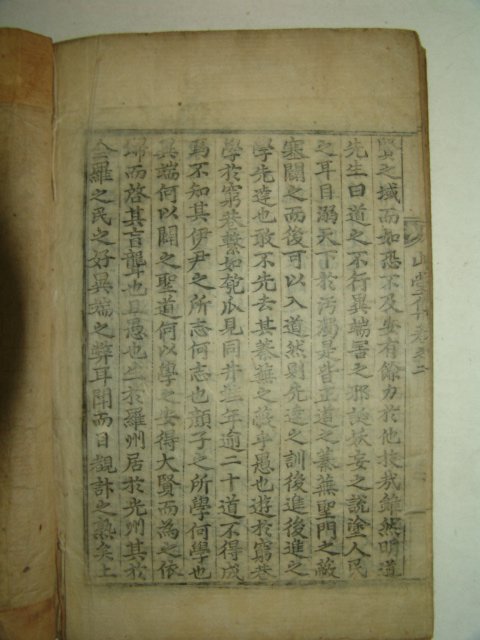 賢之域而如恐不及安有餘力於他技哉雖然明道
先生曰道之不行異端害之邪誕妖妄之說塗人民
之耳目溺天下於汚濁是皆正道之蓁蕪聖門之蔽
塞闢之而後可以入道然則先達之訓後進後進之
學先達也敢不先去其蓁蕪之蔽乎愚也遊於窮巷
學於窮巷繫如匏瓜見同井蛙年逾二十道不得成
焉不知其伊尹之所志何志也顔子之所學何學也
異端何以闢之聖道何以學之安得大賢而爲之依
歸而啓其盲聾也且愚也生於羅州居於光州其於
全羅之民之好異端之弊耳聞而目觀訃之熟矣上
山堂集卷之二